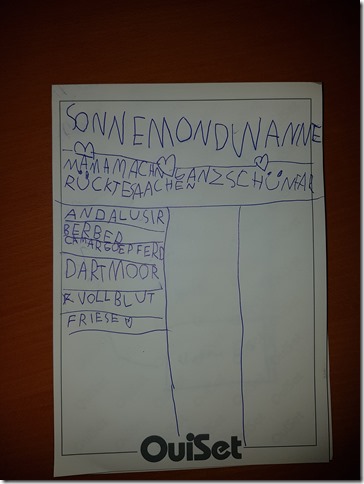 SONNEMONDWANNE
MAMAMACHN GANZSCHÜNFAR
RÜCKTESAACHEN
ANDALUSIR
BERBER
CAMARGOEPFERD
DARTMOOR
VOLLBLUT
FRIESE ♡
OuiSet